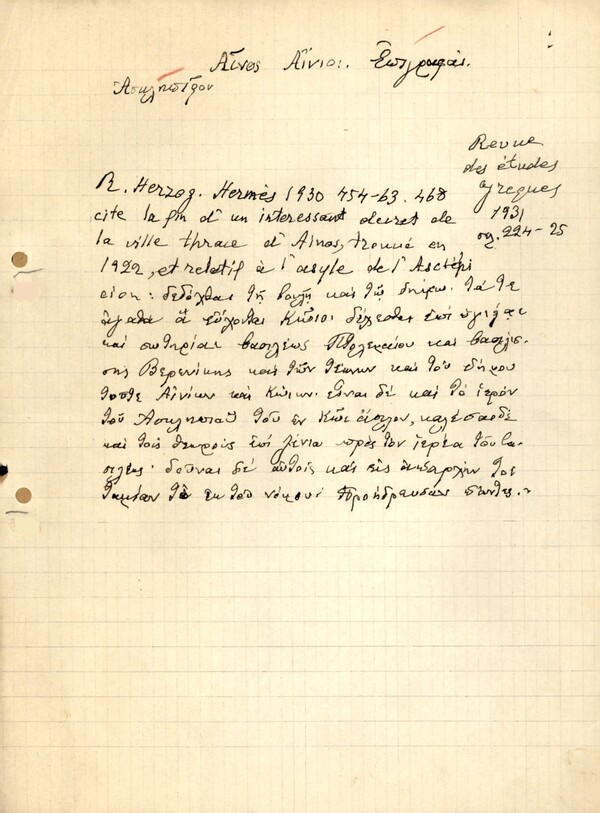 Αἶνος Αἴνιοι. Ἐπιγραφαί.
Ἀσκληπιεῖον
Revue
des études
grecques
1931
σλ. 224-25
R. Herzog. Hermès 1930 454-63. 468
cite la fin d'un interessant decret de
la ville thrace d'Ainos, trouvé en
1922, et relatif à l'asyle de l'Asclépi
eion: δεδόχθαι τῇ βουλῇ καὶ τῷ δήμῳ. τά τε
ἀγαθὰ ἃ Κώιοι δέχεσθαι ἐπὶ ὑγιείᾳ
καὶ σωτηρίαι βασιλέως Πτολεμαίου καὶ βασιλίσ-
σης Βερενίκης καὶ τῶν τέκνων καὶ τοῦ δήμου
τοῦτε Αἰνίων καὶ Κώιων. εἶναι δὲ καὶ τὸ ἱερὸν
τοῦ Ἀσκληπιοῦ τοῦ ἐν Κῶι ἄσυλον, καλέσαι δὲ
καὶ τοὺς θεωροὺς ἐπὶ ξένια πρὸς τὸν ἱερέα τοῦ βα-
σιλέως· δοῦναι δὲ αὐτοῖς καὶ εἰς ἀπαρχὴν τὸν
ταμίαν τὸ ἐκ τοῦ νόμου· πάντες.